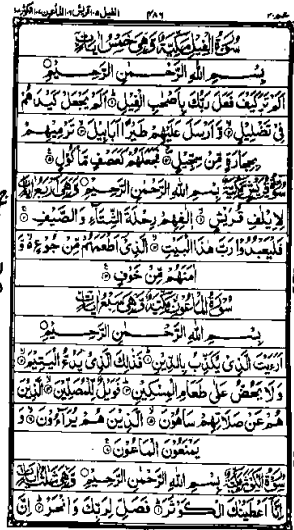 الفيل ١٠٥ قريش ١٠٦ الماعون ١٠٧ الكوثر ١٠٨ ٤٨٦ عم ٣٠
سُوْرَةُ الْفِيْلِ مَكِّيَّةٌ وَّهِيَ خَمْسُ اٰيَاتٍ
بِسْمِ اللهِ الرَّحْمٰنِ الرَّحِيْمِ
اَلَمْ تَرَ كَيْفَ فَعَلَ رَبُّكَ بِاَصْحٰبِ الْفِيْلِ ۝ اَلَمْ يَجْعَلْ كَيْدَهُمْ
فِيْ تَضْلِيْلٍ ۝ وَّاَرْسَلَ عَلَيْهِمْ طَيْرًا اَبَابِيْلَ ۝ تَرْمِيْهِمْ
بِحِجَارَةٍ مِّنْ سِجِّيْلٍ ۝ فَجَعَلَهُمْ كَعَصْفٍ مَّاْكُوْلٍ ۝
سُوْرَةُ قُرَيْشٍ مَكِّيَّةٌ بِسْمِ اللهِ الرَّحْمٰنِ الرَّحِيْمِ وَهِيَ اَرْبَعُ اٰيَاتٍ
لِاِيْلٰفِ قُرَيْشٍ ۝ اٖلٰفِهِمْ رِحْلَةَ الشِّتَآءِ وَالصَّيْفِ ۝
فَلْيَعْبُدُوْا رَبَّ هٰذَا الْبَيْتِ ۝ الَّذِيْٓ اَطْعَمَهُمْ مِّنْ جُوْعٍ ۙ وَّ
اٰمَنَهُمْ مِّنْ خَوْفٍ ۝
سُوْرَةُ الْمَاعُوْنِ مَكِّيَّةٌ وَّهِيَ سَبْعُ اٰيَاتٍ
بِسْمِ اللهِ الرَّحْمٰنِ الرَّحِيْمِ
اَرَءَيْتَ الَّذِيْ يُكَذِّبُ بِالدِّيْنِ ۝ فَذٰلِكَ الَّذِيْ يَدُعُّ الْيَتِيْمَ ۝
وَلَا يَحُضُّ عَلٰى طَعَامِ الْمِسْكِيْنِ ۝ فَوَيْلٌ لِّلْمُصَلِّيْنَ ۝ الَّذِيْنَ
هُمْ عَنْ صَلَاتِهِمْ سَاهُوْنَ ۝ الَّذِيْنَ هُمْ يُرَآءُوْنَ ۝ وَ
يَمْنَعُوْنَ الْمَاعُوْنَ ۝
سُوْرَةُ الْكَوْثَرِ مَكِّيَّةٌ بِسْمِ اللهِ الرَّحْمٰنِ الرَّحِيْمِ وَهِيَ ثَلٰثُ اٰيَاتٍ
اِنَّآ اَعْطَيْنٰكَ الْكَوْثَرَ ۝ فَصَلِّ لِرَبِّكَ وَانْحَرْ ۝ اِنَّ